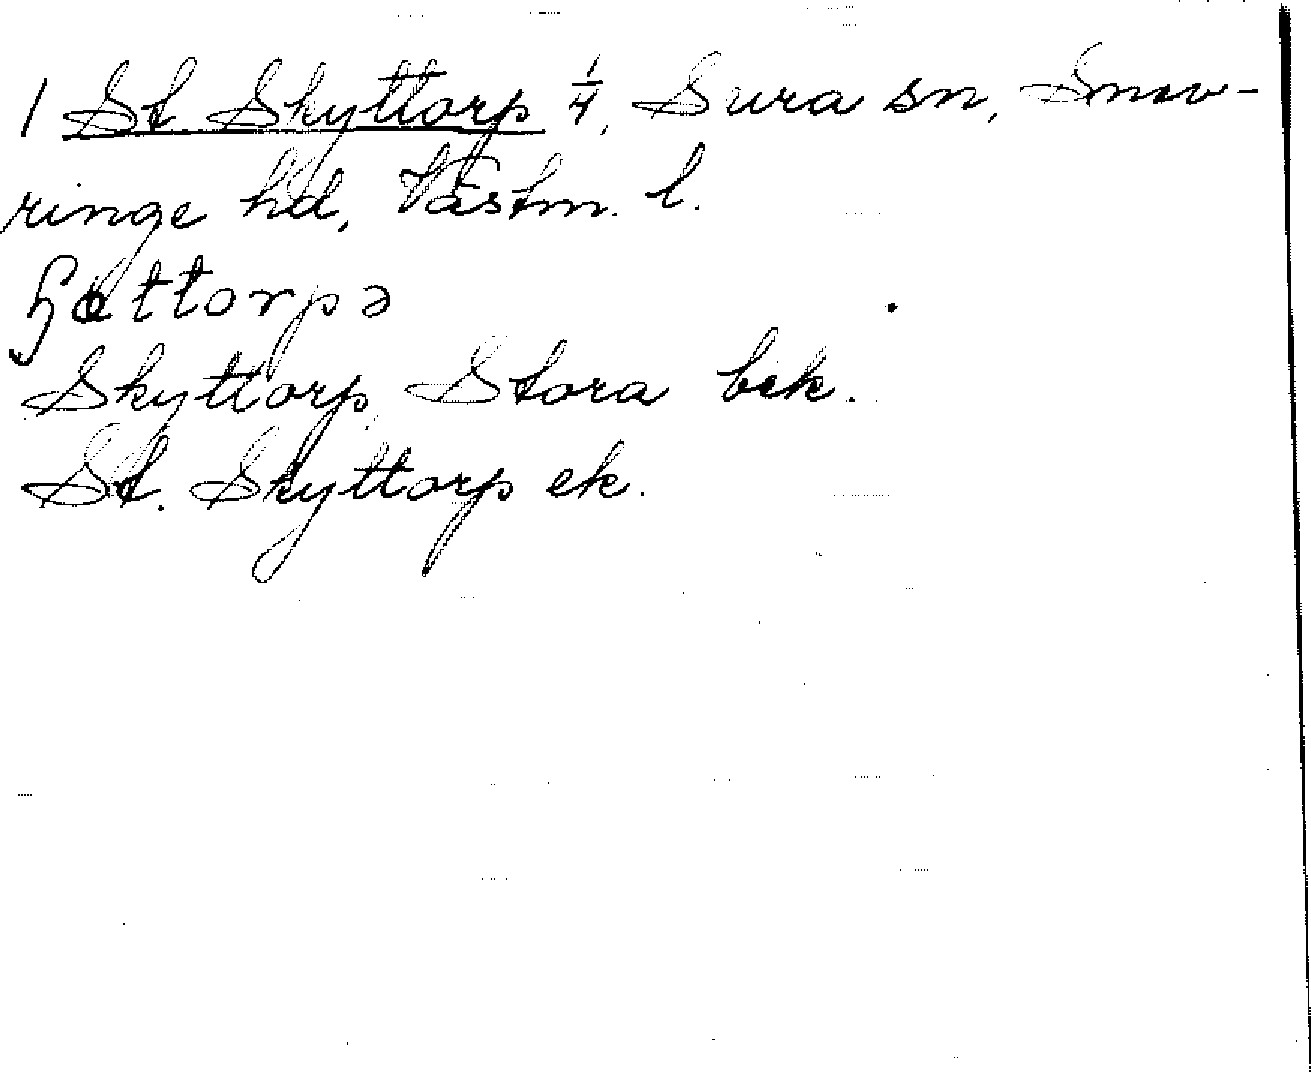 1 St Skyttorp 1/4, Sura sn, Snav-
ringe hd, Västm. l.
ɧøttorpə
Skyttorp Stora bek.
St. Skyttorp ek.